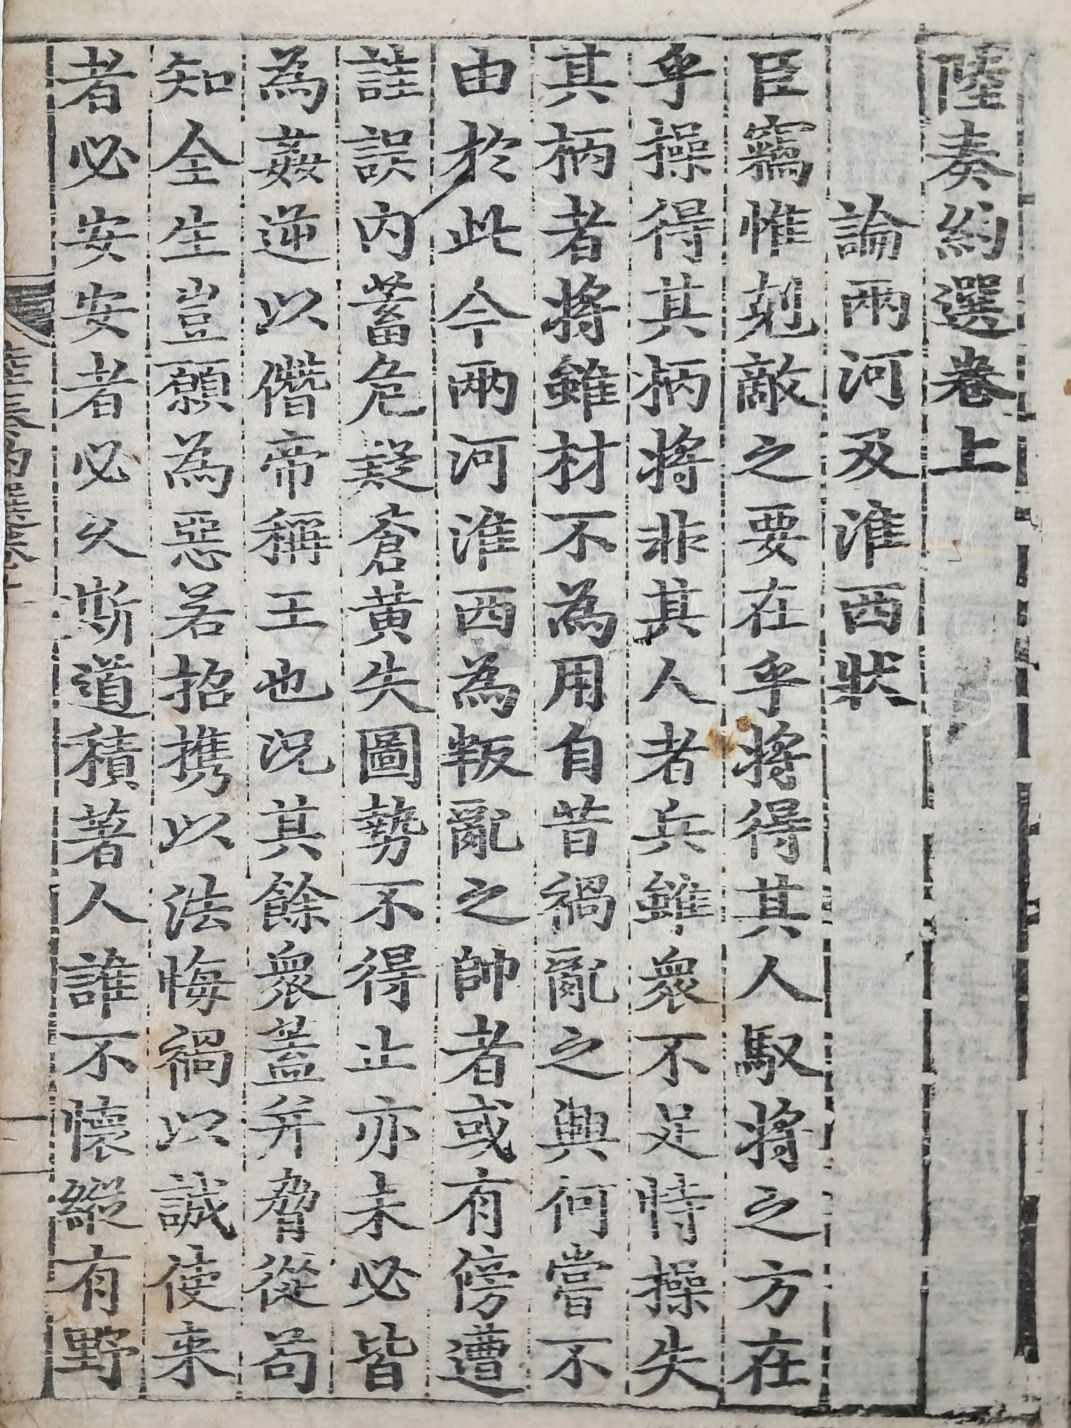 陸奏約選卷上
論兩河及淮西狀
臣竊惟剋敵之要在乎將得其人馭將之方在
乎操得其柄將非其人者兵雖衆不足恃操失
其柄者將雖材不為用自昔禍亂之興何嘗不
由於此今兩河淮西為叛亂之帥者或有傍遭
詿誤內蓄危疑蒼黃失圖勢不得止亦未必皆
為姦逆以僭帝稱王也况其餘衆蓋并脅從苟
知全生豈願為惡若招携以法悔禍以誠使来
者必安安者必久斯道積著人誰不懷縱有野
陸奏約選卷上